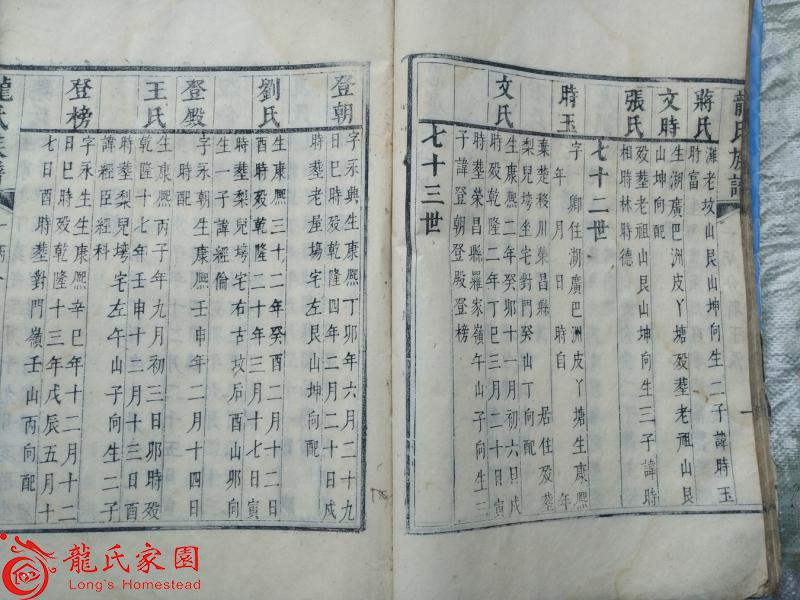 龍氏族譜
蔣氏
灘老坟山艮山坤向生二子諱時玉
時富
文時
生湖廣巴洲皮丫塘殁塟老祖山艮
山坤向配
張氏
殁塟老祖山艮山坤向生三子諱時
相時林時德
七十二世
時玉
字 卿住湖廣巴洲皮丫塘生康熙
年 月 日 時自 年
棄楚移川榮昌縣 居住殁塟
梨兒塆坐宅對門癸山丁向配
文氏
生康熙二年癸卯十一月初六日戌
時殁乾隆二年丁巳三月二十日寅
時塟榮昌縣羅家嶺午山子向生三
子諱登朝登殿登榜
七十三世
登朝
字永興生康熙丁卯年六月二十九
日巳時殁乾隆四年二月二十日戌
時殁塟老屋塆宅左艮山坤向配
劉氏
生康熙三十二年癸酉二月十二日
酉時殁乾隆二十年三月十七日寅
時塟梨兒塆宅右古坟后酉山卯向
生一子諱經倫
登殿
字永朝生康熙壬申年二月十四日
時配
王氏
生康熙丙子年九月初三日卯時殁
乾隆十七年壬申十二月十三日酉
時塟梨兒塆宅左午山子向生二子
諱經臣經科
登榜
字永生生康熙辛巳年十二月十二
日巳時殁乾隆十三年戊辰五月十
七日酉時塟對門嶺壬山丙向配
龍氏族譜
龍氏家園
Long's Homestead